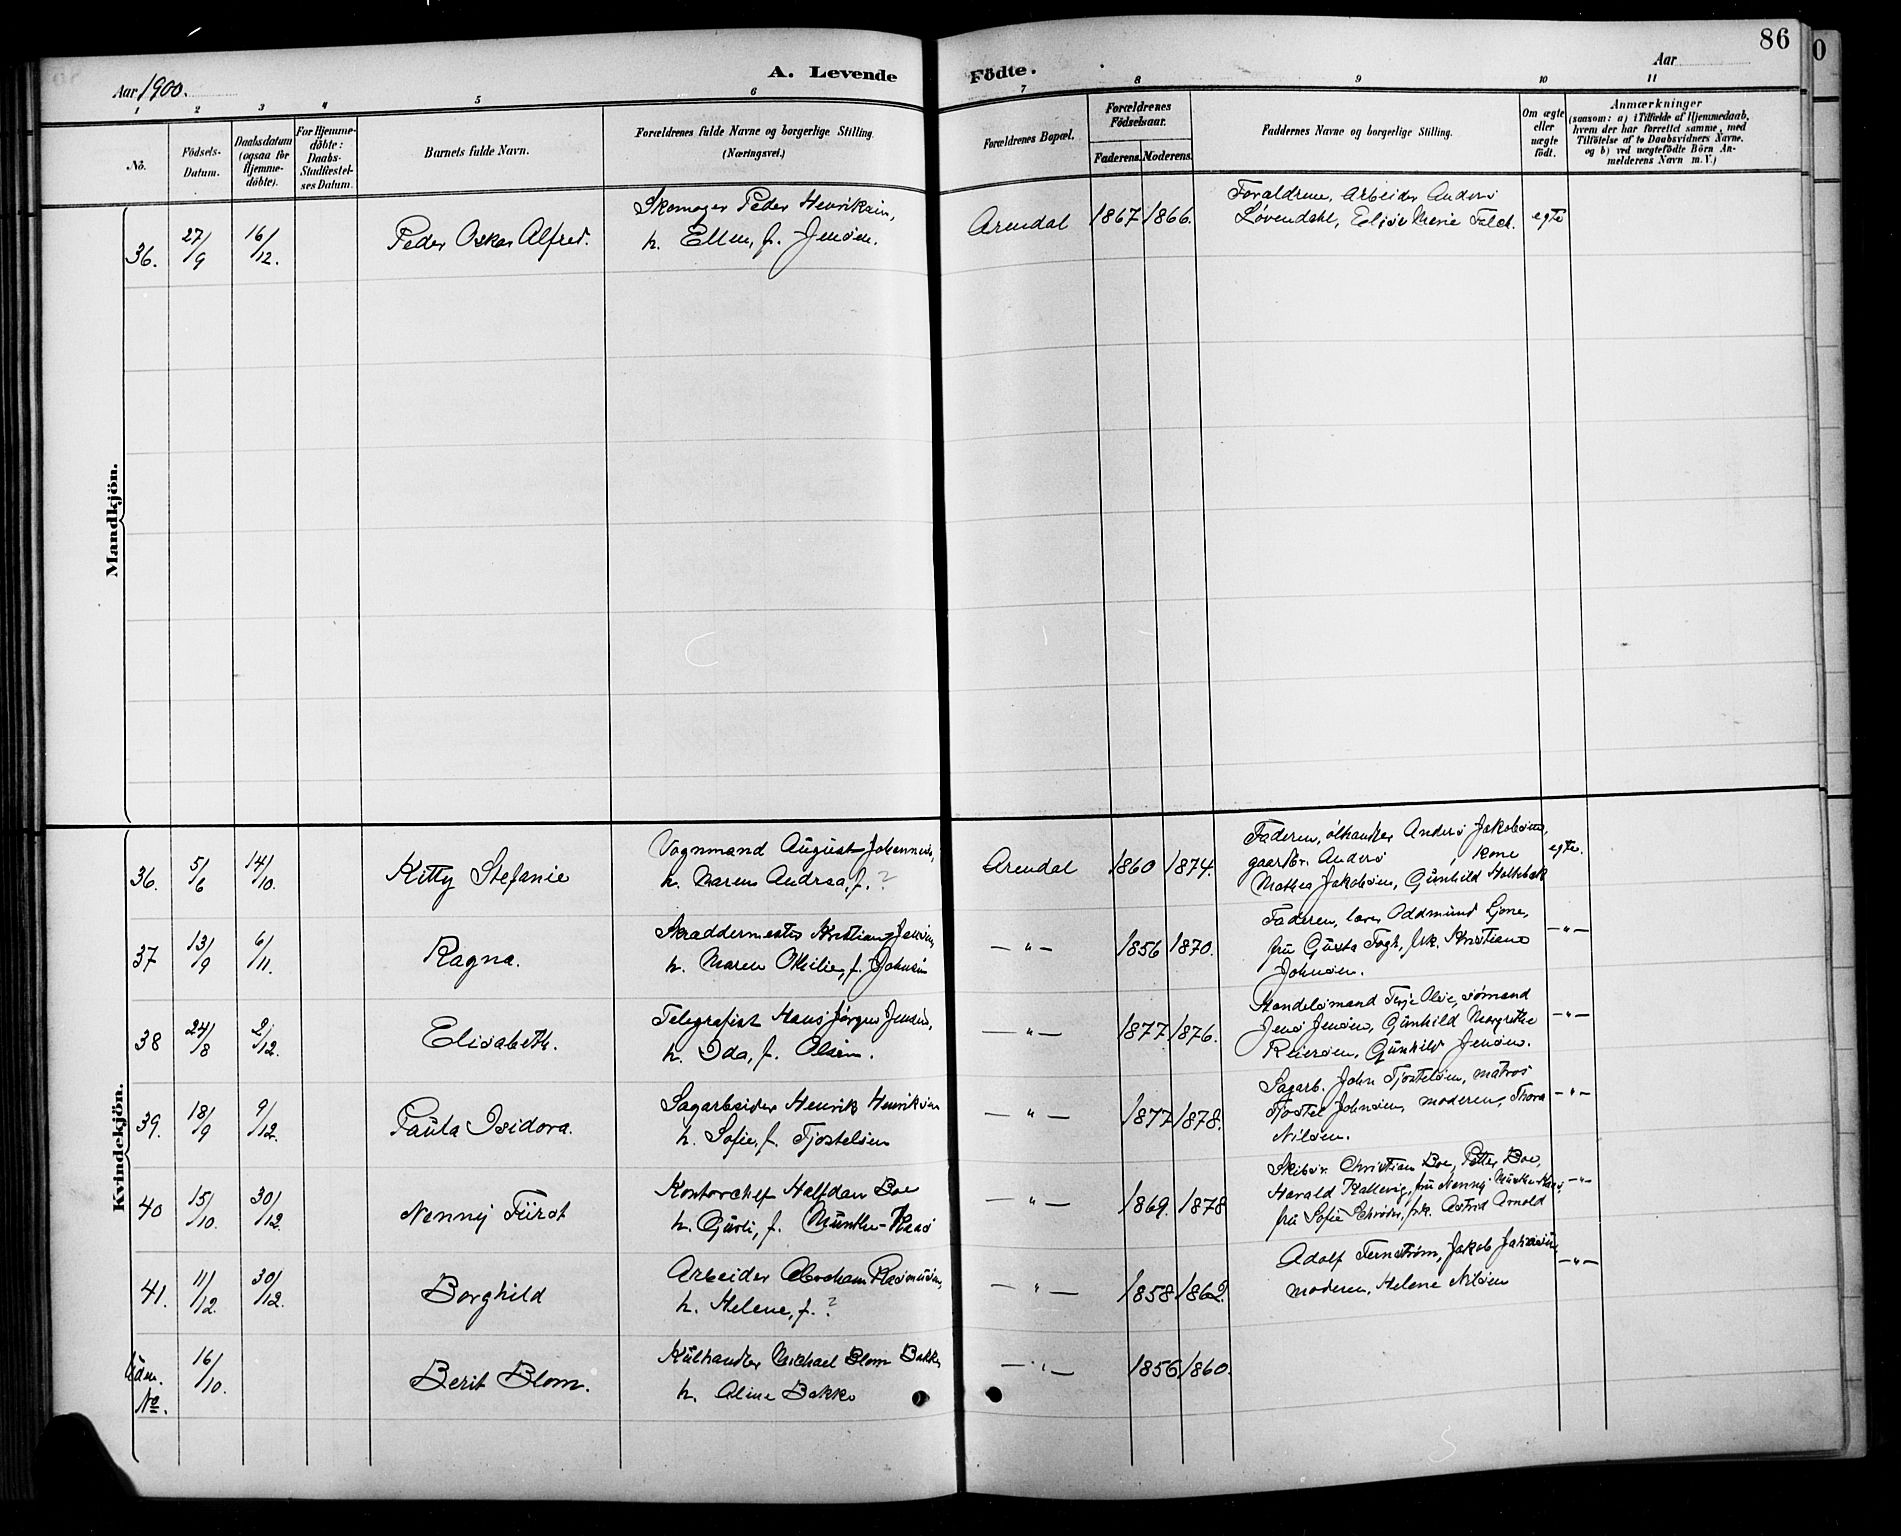 86
Aar 1900.
A. Levende Födte.
Aar
1 2 3 4 5 6 7 8 9 10 11
No.
Födsels-Datum.
Daabsdatum (ogsaa for Hjemmedöbte).
For Hjemmedöbte: Daabs-Stadfæstelses Datum.
Barnets fulde Navn.
Forældrenes fulde Navne og borgerlige Stilling.
(Næringsvei.)
Forældrenes Bopæl.
Forældrenes Födselsaar.
Faderens. Moderens.
Faddernes Navne og borgerlige Stilling.
Om ægte eller uægte födt.
Anmærkninger
(saasom: a) i Tilfælde af Hjemmedaab,
hvem der har forrettet samme, med
Tilföielse af to Daabsvidners Navne,
og b) ved uægtefödte Börn Anmelderens Navn m. V.)
Mandkjön.
36. 27/9 16/12. Peder Oskar Alfred.
Skomager Peder Henriksen,
h. Ellen, f. Jensen.
Arendal 1867 1866.
Forældrene, Arbeider Anders
Løvendahl, Elise Marie Falch. egte
Kvindekjön.
36. 5/6 14/10. Kitty Stefanie
Vognmand August Johannesen,
h. Maren Andrea, f. ?
Arendal 1860 1874.
Faderen, ølhandler Anders Jakobsen,
gaardbr. Anders kone
Mathea Jakobsen, Gunhild Holtebæk
egte.
37 13/9 6/11. Ragna.
Skræddermester Kristian Jensen,
h. Maren Othilie, f. Johnsen
— " — 1856 1870.
Faderen, lærer Oddmund Ljone,
fru Gusta Fogh, frk. Kristiane
Johnsen.
— " —
38 24/8 2/12. Elisabeth.
Telegrafist Hans Jørgen Jensen,
h. Ida, f. Olsen.
— " — 1877 1876.
Handelsmand Terje Olsen, sømand
Jens Jensen, Gunhild Margrethe
Reiersen, Gunhild Jensen.
— " —
39. 18/9 9/12. Paula Isidora.
Sagarbeider Henrik Henriksen
h. Sofie, f. Tjostelsen
— " — 1877 1878.
Sagarb. John Tjostelsen, matros
Tjostel Johnsen, moderen, Thora
Nilsen.
— " —
40 15/10. 30/12. Nenny Fürst
Kontorchef Halfdan Boe
h. Gusti, f. Münther-Haas
— " — 1869. 1878
Skibsr. Christian Boe, Petter Boe,
Harald Kallevig, fru Nenny
fru Sofie Schrøder, frk. Astrid Arnold
— " —
41. 11/12. 30/12. Borghild
Arbeider Abraham Rasmussen,
h. Helene, f. ?
— " — 1858 1862.
Adolf Fernstrøm, Jakob
moderen, Helene Nilsen
— " —
Uden No. 16/10. Berit Blom.
Kulhandler Michael Blom Bakke,
h. Aline Bakke
— " — 1856 1860.